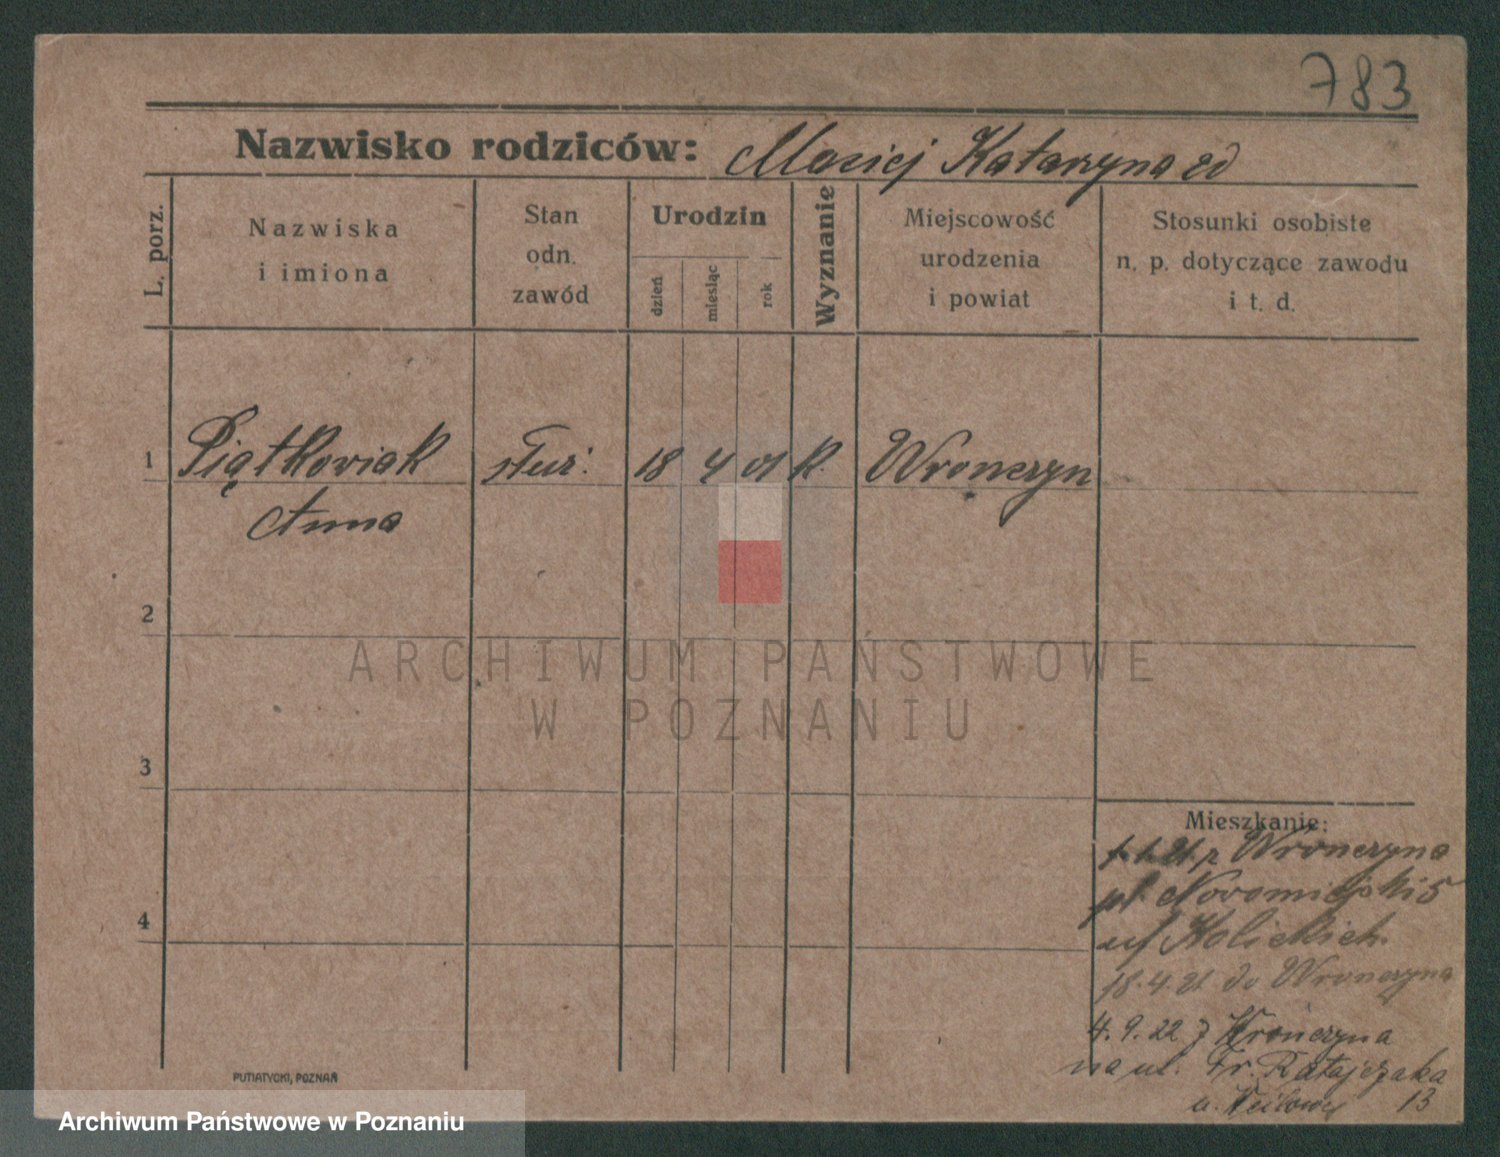 783
Nazwisko rodziców: Maciej Katarzyna
L. porz.
Nazwiska
i imiona
Stan
odn.
zawód
Urodzin
dzień
miesiąc
rok
Wyznanie
Miejscowość
urodzenia
i powiat
Stosunki osobiste
n. p. dotyczące zawodu
i t. d.
1 Piątkowiak służ. 18 4 01 k. Wronczyn
Anna
2
ARCHIWUM PAŃSTWOWE
W POZNANIU
3
Mieszkanie:
Wronczyna
pl. Nowomiejski 5
Kolickich
4
18.4.21 do Wronczyna
4.9.22 z Wronczyna
na ul. Fr. Ratajczaka
13
PUTIATYCKI, POZNAŃ
Archiwum Państwowe w Poznaniu